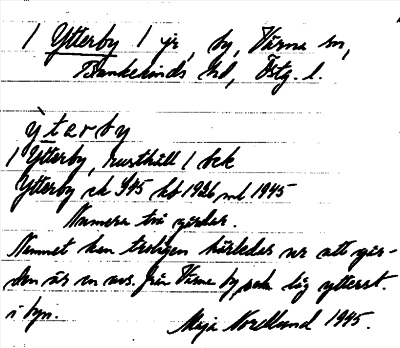 1 Ytterby 1 gd, by, Värna sn,
Bankekinds hd, Östg. l.
ỳtərby
1 Ytterby, rusthåll 1 bck
Ytterby ek 945 kb 1926 ml 1945
Numera två gårdar.
Namnet kan troligen härledas ur att går-
den är en avs. från Värna by, som låg ytterst
i byn.
Maja Nordlund 1945.